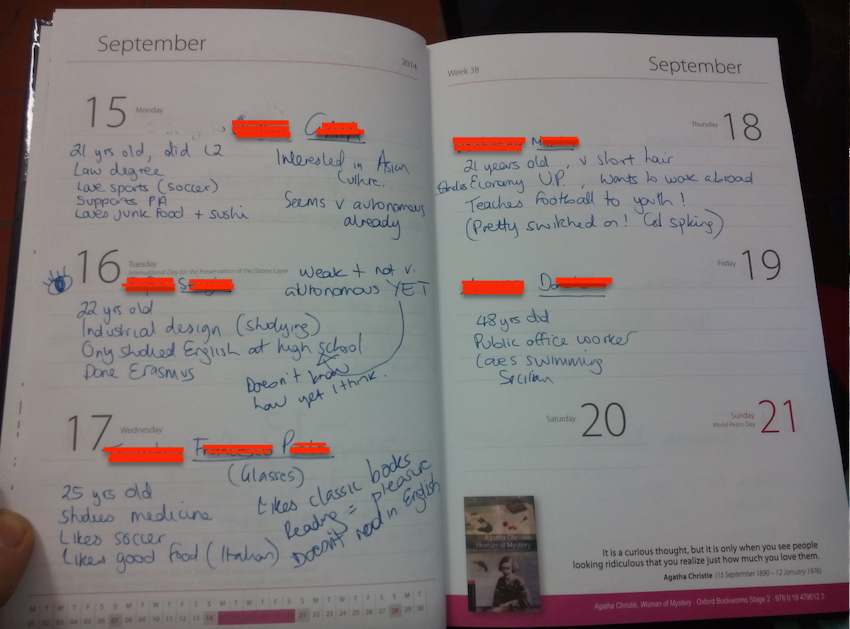 September
2014
15
Monday
21 yrs old, did L2
Law degree
Love sports (soccer)
Supports PA
Loves junk food + sushi
Interested in Asian
Culture.
Seems v autonomous
already
16
Tuesday
International Day for the Preservation of the Ozone Layer
22 yrs old
Industrial design (studying)
Only studied English at high school
Done Erasmus
weak + not v.
autonomous YET
Doesn't know
how yet I think.
17
Wednesday
(Glasses)
25 yrs old
studies medicine
Likes soccer
Likes good food (Italian)
Likes classic books
Reading = pleasure
Doesn't read in English
M T W T F S S M T W T F S S M T W T F S S M T W T F S S M T
Week 38
September
Thursday
18
21 years old, v short hair
Economy UP., wants to work abroad
Teaches football to youth!
(Pretty switched on!
Friday
19
48 yrs old
Public office worker
Loves swimming
Sicilian
Saturday
20
Sunday
World Peace Day
21
Agatha Christie,
Woman of Mystery
It is a curious thought, but it is only when you see people
looking ridiculous that you realize just how much you love them.
Agatha Christie (15 September 1890 – 12 January 1976)
Agatha Christie, Woman of Mystery Oxford Bookworms Stage 2 · 978 0 19 479012 3